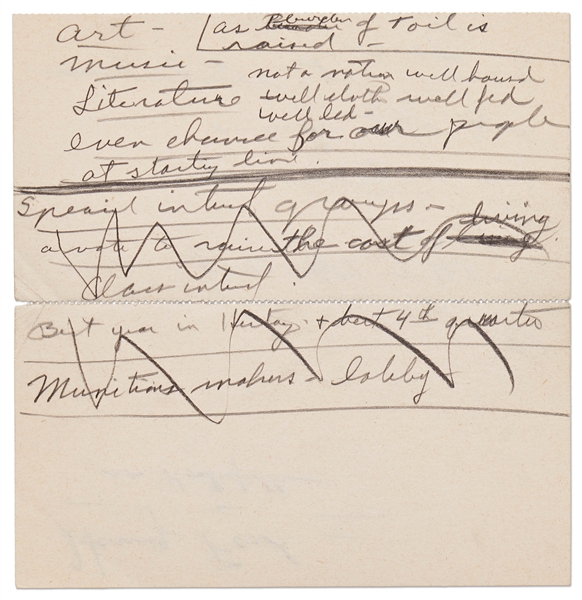 Art - as burden of toil is
raised -
Music -
not a nation well housed
Literature well cloth well fed
well led -
even chance for our people
at starting line.
Special interest groups -
a vote to raise the cost of living.
Class interest.
Best year in History + best 4th quarter
Munitions makers - lobby -